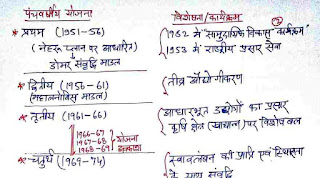 पंचवर्षीय योजना
विशेषता/कार्यक्रम
* प्रथम (1951-56)
1952 में "सामुदायिक विकास" कार्यक्रम
(नेहरू प्लान पर आधारित)
1953 में राष्ट्रीय प्रसार सेवा
डोमर संवृद्धि माडल
* द्वितीय (1956-61)
तीव्र औद्योगीकरण
(महालनोबिस माडल)
* तृतीय (1961-66)
आधारभूत उद्योगों का प्रसार
कृषि क्षेत्र (खाद्यान्न) पर विशेष बल
1966-67
1967-68
योजना
1968-69
अवकाश
* चतुर्थ (1969-74)
स्वावलंबन की प्राप्ति एवं स्थिरता
के साथ संवृद्धि